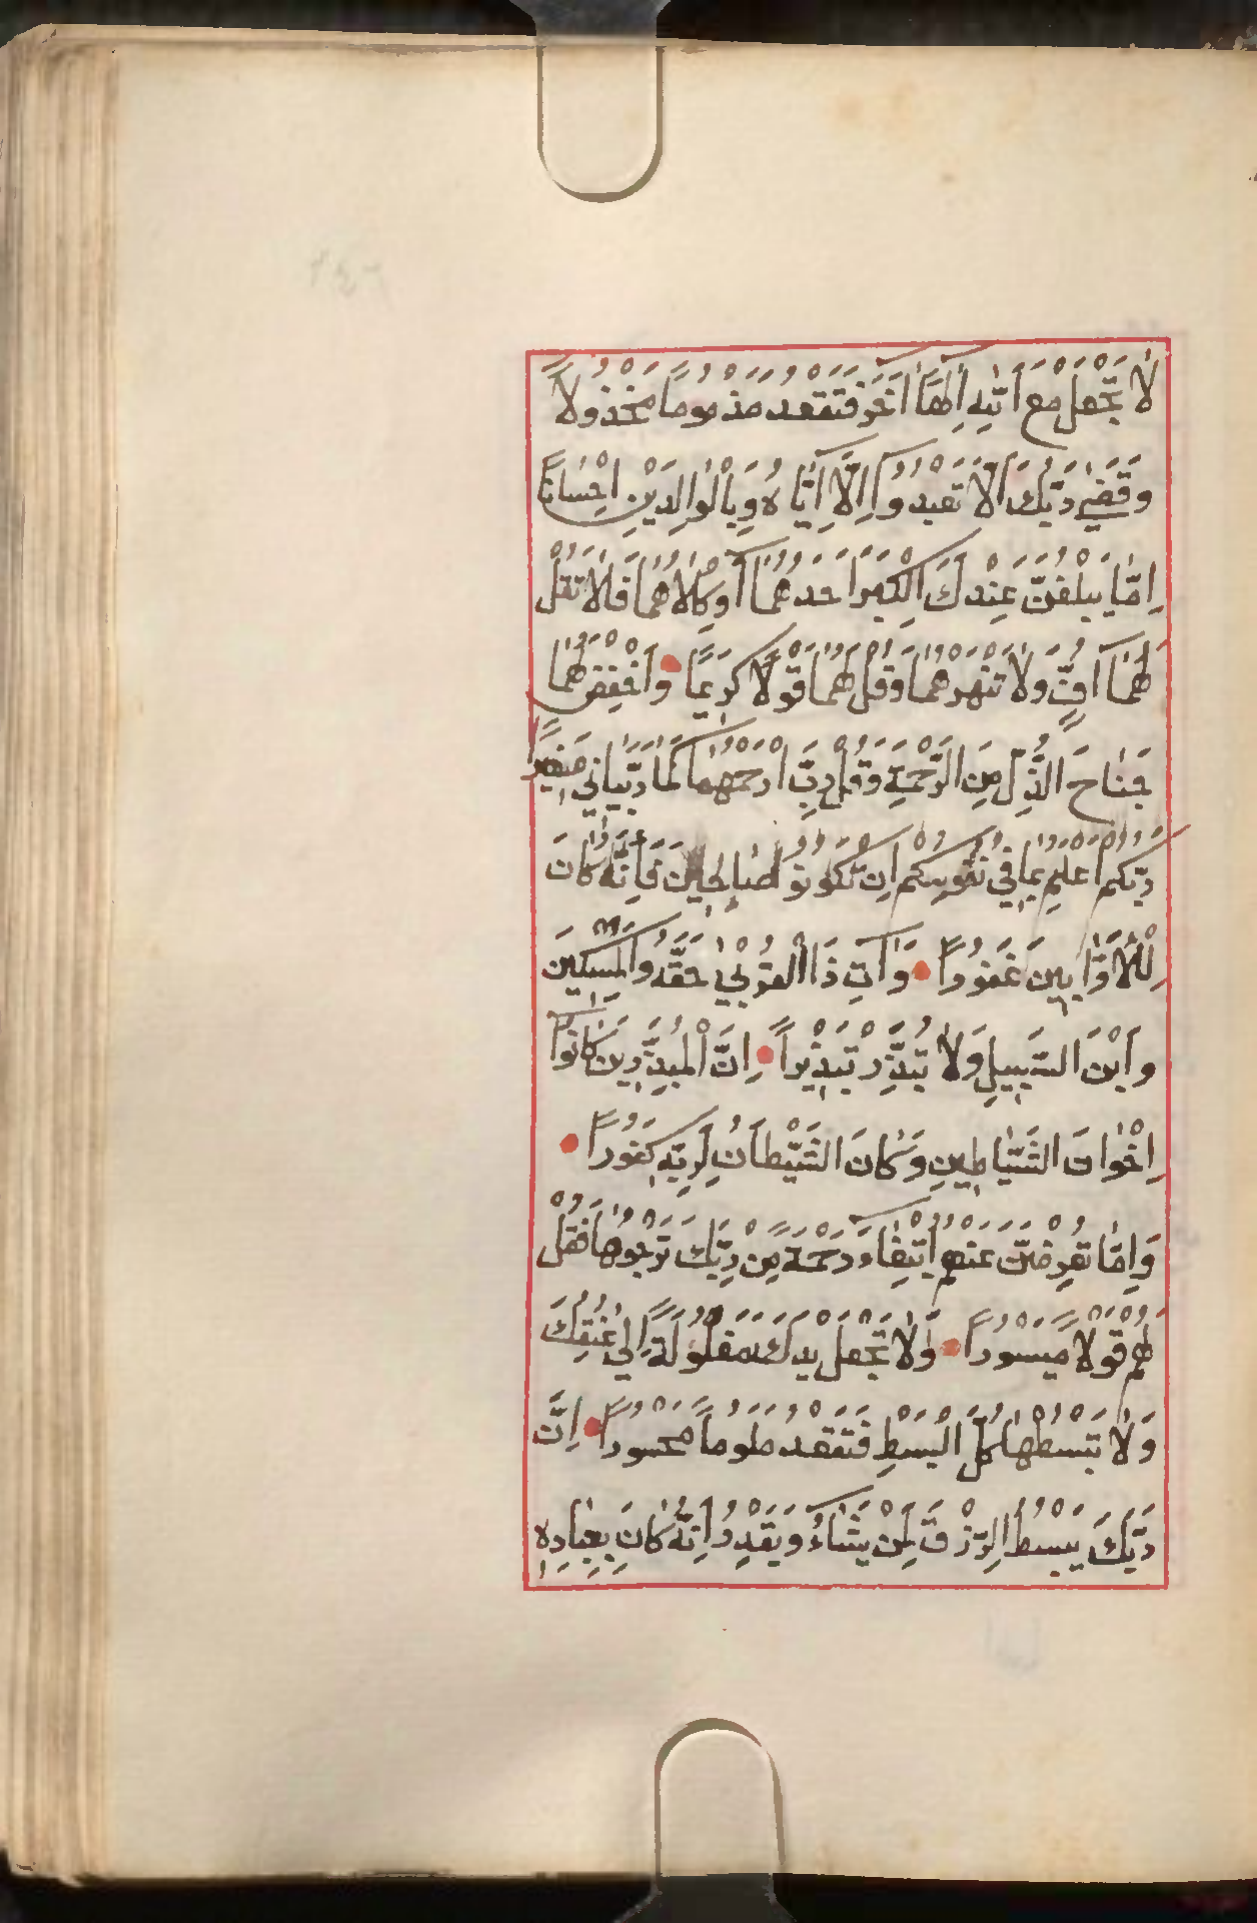 لَا تَجْعَلْ مَعَ اللّٰهِ اِلٰهًا اٰخَرَ فَتَقْعُدَ مَذْمُومًا مَخْذُولًا
وَقَضٰى رَبُّكَ اَلَّا تَعْبُدُوا اِلَّا اِيَّاهُ وَبِالْوَالِدَيْنِ اِحْسَانًا
اِمَّا يَبْلُغَنَّ عِنْدَكَ الْكِبَرَ اَحَدُهُمَا اَوْ كِلَاهُمَا فَلَا تَقُلْ
لَهُمَا اُفٍّ وَلَا تَنْهَرْهُمَا وَقُلْ لَهُمَا قَوْلًا كَرِيمًا وَاخْفِضْ لَهُمَا
جَنَاحَ الذُّلِّ مِنَ الرَّحْمَةِ وَقُلْ رَبِّ ارْحَمْهُمَا كَمَا رَبَّيَانِي صَغِيرًا
رَبُّكُمْ اَعْلَمُ بِمَا فِي نُفُوسِكُمْ اِنْ تَكُونُوا صَالِحِينَ فَاِنَّهُ كَانَ
لِلْاَوَّابِينَ غَفُورًا وَاٰتِ ذَا الْقُرْبٰى حَقَّهُ وَالْمِسْكِينَ
وَابْنَ السَّبِيلِ وَلَا تُبَذِّرْ تَبْذِيرًا اِنَّ الْمُبَذِّرِينَ كَانُوا
اِخْوَانَ الشَّيَاطِينِ وَكَانَ الشَّيْطَانُ لِرَبِّهِ كَفُورًا
وَاِمَّا تُعْرِضَنَّ عَنْهُمُ ابْتِغَاءَ رَحْمَةٍ مِنْ رَبِّكَ تَرْجُوهَا فَقُلْ
لَهُمْ قَوْلًا مَيْسُورًا وَلَا تَجْعَلْ يَدَكَ مَغْلُولَةً اِلٰى عُنُقِكَ
وَلَا تَبْسُطْهَا كُلَّ الْبَسْطِ فَتَقْعُدَ مَلُومًا مَحْسُورًا اِنَّ
رَبَّكَ يَبْسُطُ الرِّزْقَ لِمَنْ يَشَاءُ وَيَقْدِرُ اِنَّهُ كَانَ بِعِبَادِهِ